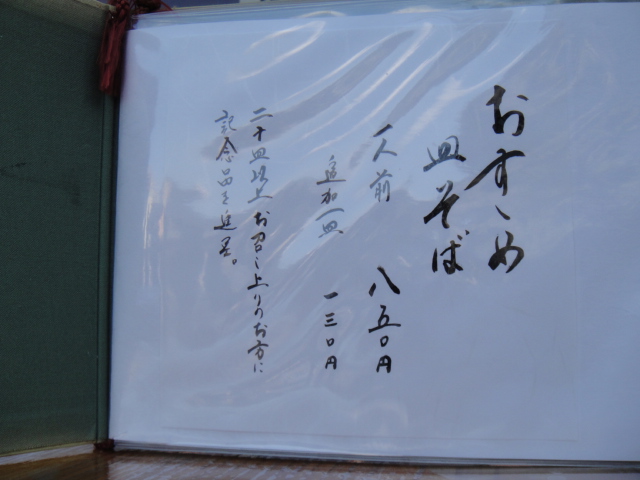 おすゝめ
皿そば
一人前 八五〇円
追加一皿 一三〇円
二十皿以上お召し上りのお方に
記念品を進呈。